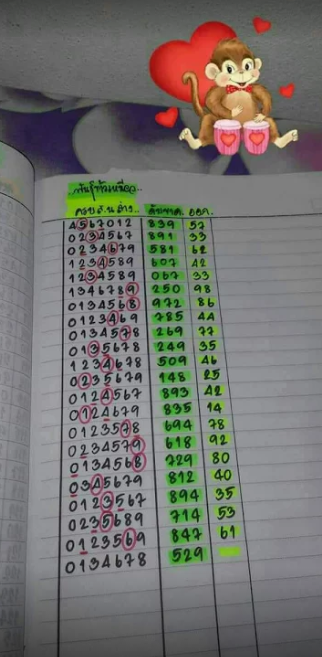 4567012 839 57
0234567 891 33
0234679 581 62
1234589 607 42
1234589 067 33
1346789 250 98
0134568 972 86
0123469 785 44
0134578 269 77
0135678 249 35
1234678 509 46
0235679 148 25
0124567 893 42
0124679 835 14
0123578 694 78
0234579 618 92
0134568 729 80
0345679 812 40
0123567 894 35
0235689 714 53
0123569 847 61
0134678 529